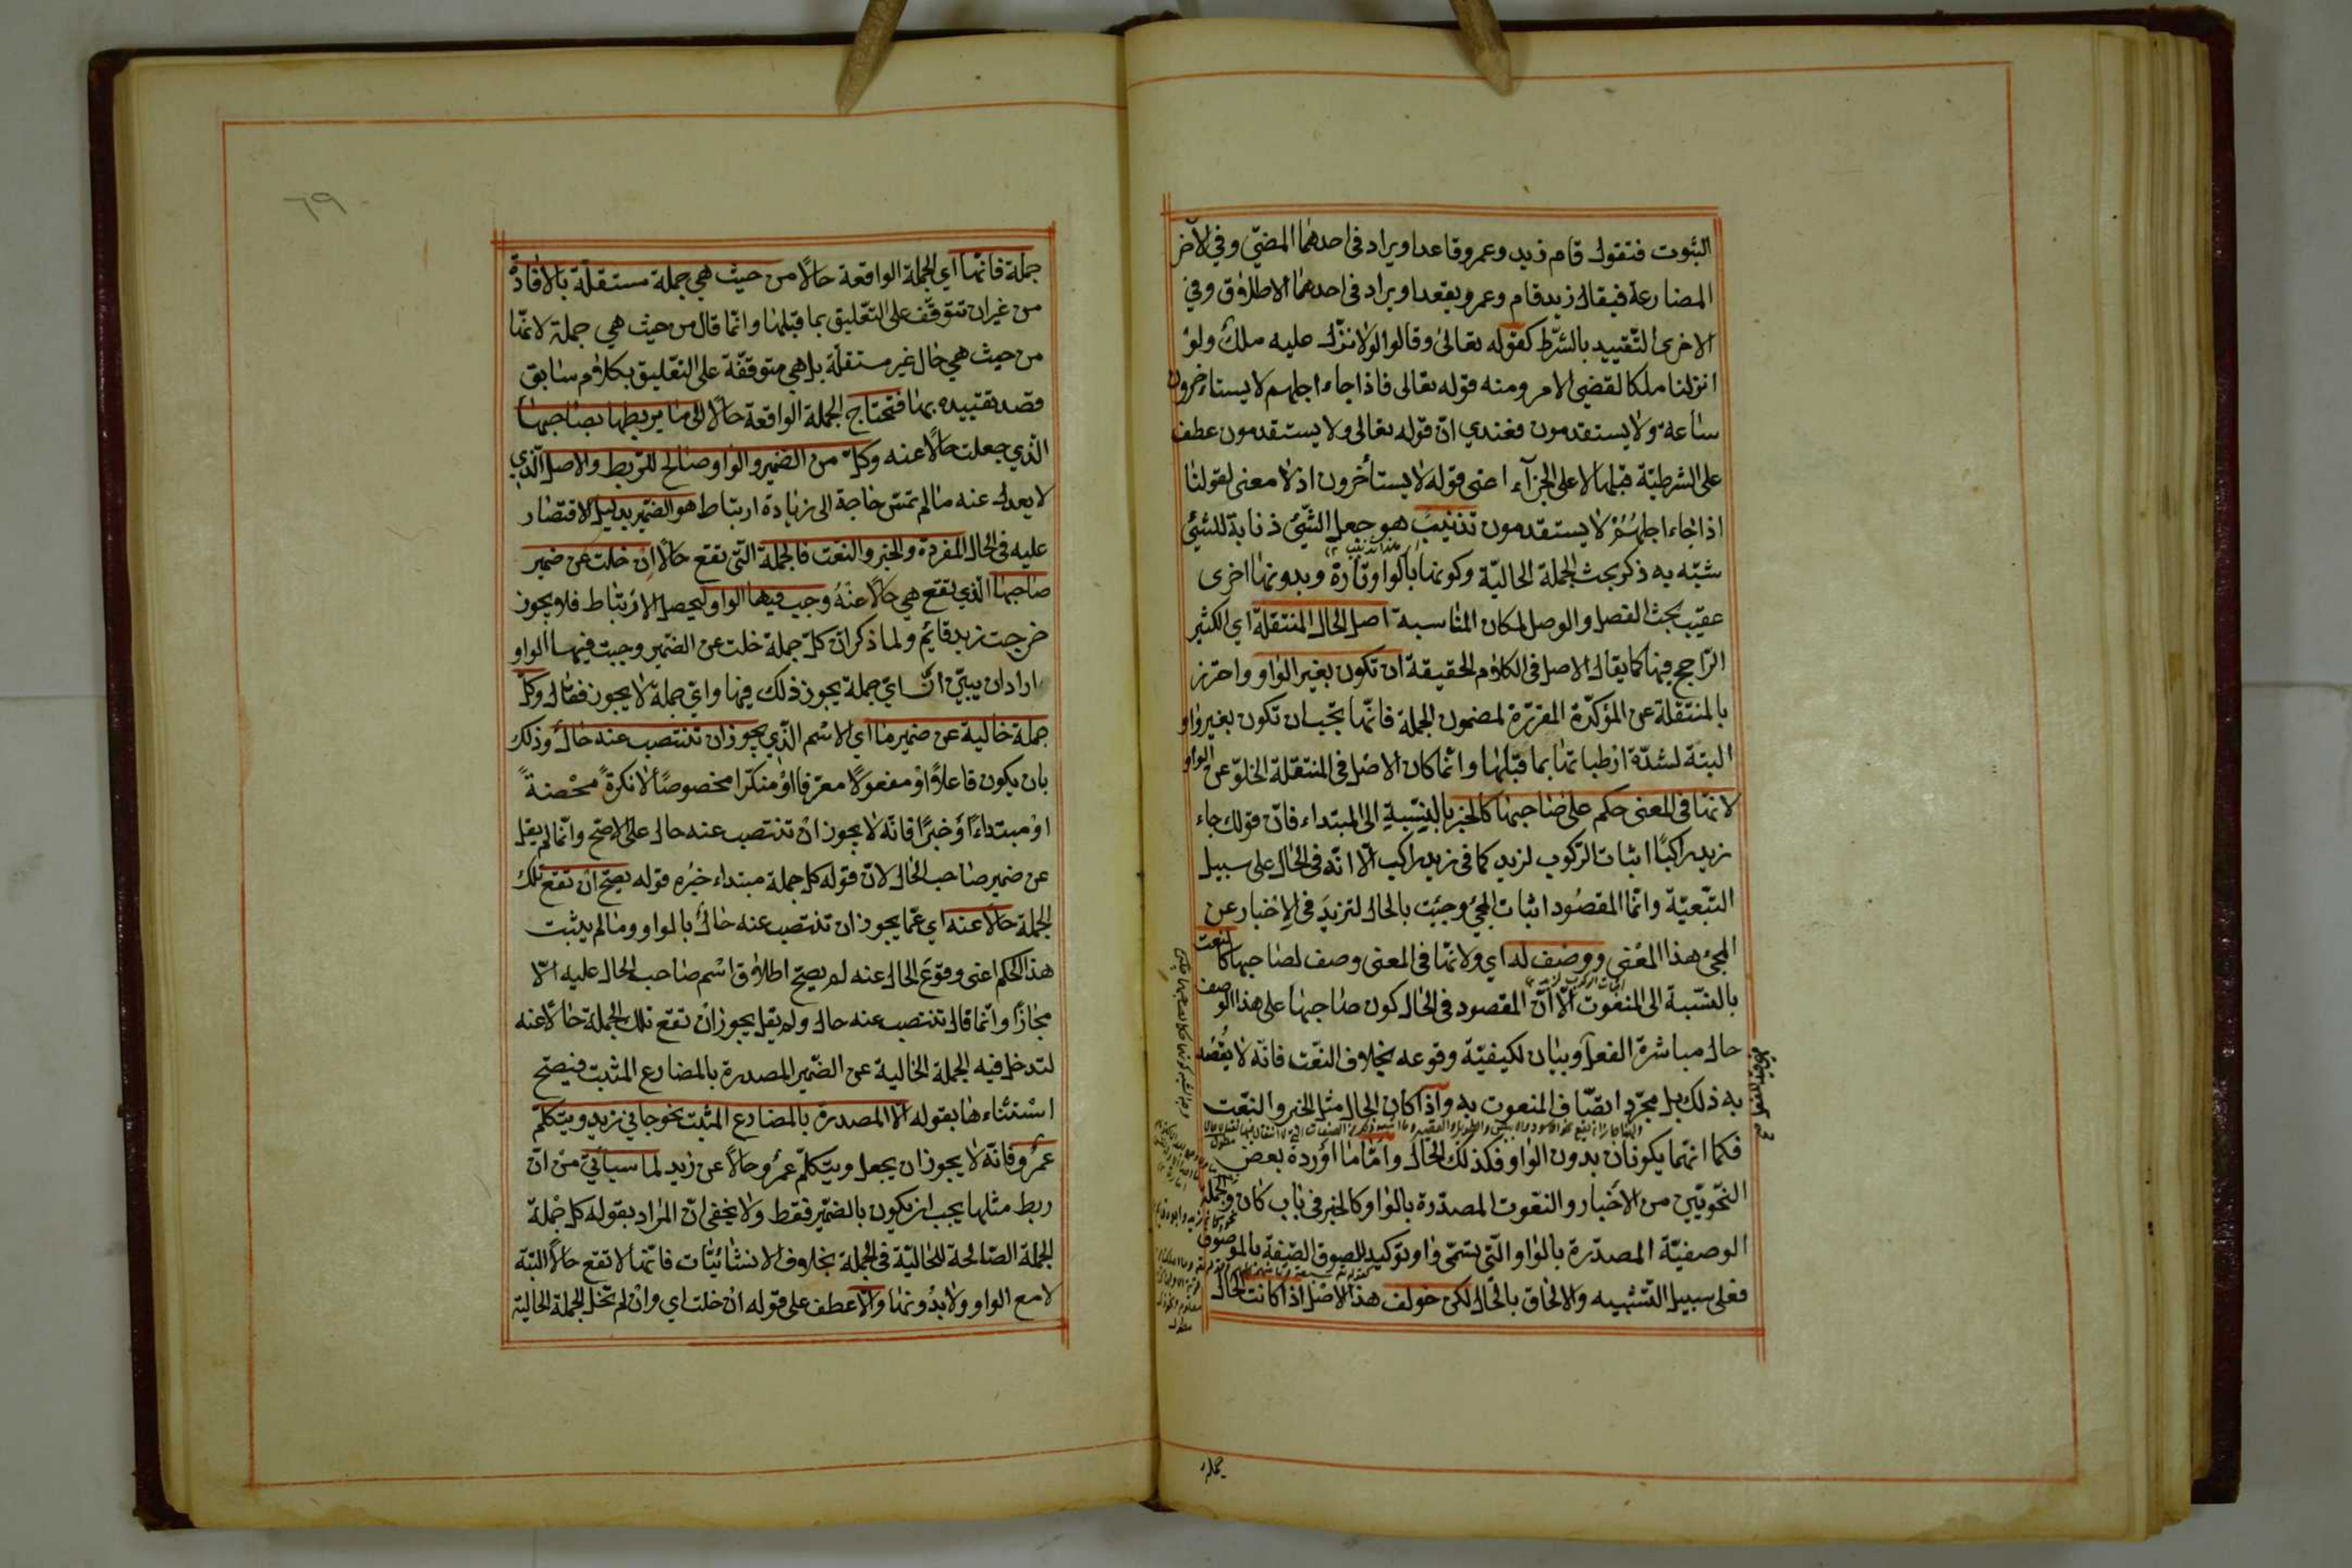 الثبوت فتقول قام زيد وعمرو قاعد او يراد فى احدهما المضيّ وفي الآخر
المضارعة فيقال زيد قام وعمرو يقعد او يراد فى احدهما الاطلاق وفي
الاخرى التقييد بالشرط كقوله تعالى وقالوا لولا نزل عليه ملك ولو
انزلنا ملكا لقضي الامر ومنه قوله تعالى فاذا جاء اجلهم لا يستاءخرون
ساعة ولا يستقدمون فعندي انّ قوله تعالى ولا يستقدمون عطف
على الشرطيّة قبلها لا على الجزآء اعنى قوله لا يستأخرون اذ لا معنى لقولنا
اذا جاء اجلهم لا يستقدمون تذنيب هو جعل الشّيئ ذنابة للشيئ
شبّه به ذكر بحث الجملة الحاليّة وكونها بالواو تارة وبدونها اخرى
عقيب بحث الفصل والوصل لمكان المناسبة اصل الحال المنتقلة اي الكثير
الرّاجح فيها كما يقال الاصل فى الكلام الحقيقة ان تكون بغير الواو واحترز
بالمنتقلة عن المؤكّدة المقرّرة لمضمون الجملة فانّها يجب ان تكون بغير واو
البتة لشدّة ارتباطها بما قبلها وانّما كان الاصل فى المنتقلة الخلوّ عن الواو
لانّها فى المعنى حكم على صاحبها كالخبر بالنسبة الى المبتداء فانّ قولك جاء
زيد راكبًا اثبات الرّكوب لزيد كما فى زيد راكب الّا انّه فى الحال على سبيل
التّبعيّة وانّما المقصود اثبات المجئ وجئت بالحال لتزيد فى الاخبار عن
المجئ هذا المعنى ووصف له اي ولانّها فى المعنى وصف لصاحبها كالنعت
بالنّسبة الى المنعوت الّا انّ المقصود فى الحال كون صاحبها على هذا الوصف
حال مباشرة الفعل وبيان لكيفيّة وقوعه بخلاف النّعت فانّه لا يقصد
به ذلك بل مجرّد اتصّاف المنعوت به واذا كان الحال مثل الخبر والنّعت
فكما انّهما يكونان بدون الواو فكذلك الحال وامّا ما اورده بعض
النّحويّين من الاخبار والنعوت المصدّرة بالواو كالخبر فى باب كان والجملة
الوصفيّة المصدّرة بالواو الّتى يسمّى واو توكيد للصوق الصّفة بالموصوف
فعلى سبيل التّشبيه والالحاق بالحال لكن خولف هذا الاصل اذا كانت الحال
جملة
٦٩
جملة فانّها اي الجملة الواقعة حالًا من حيث هي جملة مستقلّة بالافادة
من غير ان تتوقّف على التّعليق بما قبلها وانّما قال من حيث هي جملة لانّها
من حيث هي حال غير مستقلّة بل هي متوقفّة على التعليق بكلام سابق
قصد تقييده بها فتحتاج الجملة الواقعة حالًا الى ما يربطها بصاحبها
الّذي جعلت حالًا عنه وكلّ من الضمير والواو صالح للرّبط والاصل الّذي
لا يعدل عنه ما لم تمسّ حاجة الى زيادة ارتباط هو الضّمير بدليل الاقتصار
عليه فى الحال المفردة والخبر والنعت فالجملة الّتى تقع حالًا ان خلت عن ضمير
صاحبها الّذي تقع هي حالًا عنه وجب فيها الواو ليحصل الارتباط فلا يجوز
خرجت زيد قايم ولما ذكر انّ كلّ جملة خلت عن الضّمير وجبت فيها الواو
اراد ان يبيّن انّ ايّ جملة يجوز ذلك فيها وايّ جملة لا يجوز فقال وكلّ
جملة خالية عن ضمير ما اي الاسم الّذي يجوز ان تنتصب عنه حال وذلك
بان يكون فاعلًا او مفعولًا معرّفا او منكّرا مخصوصًا لا نكرة محضة
او مبتداءً او خبرًا فانّه لا يجوز ان تنتصب عنه حال على الاصحّ وانّما لم يقل
عن ضمير صاحب الحال لانّ قوله كل جملة مبتداء خبره قوله يصحّ ان تقع تلك
الجملة حالًا عنه اي عمّا يجوز ان تنتصب عنه حال بالواو وما لم يثبت
هذا الحكم اعنى وقوع الحال عنه لم يصحّ اطلاق اسم صاحب الحال عليه الّا
مجازًا وانّما قال تنتصب عنه حال ولم يقل يجوز ان تقع تلك الجملة حالًا عنه
لتدخل فيه الجملة الخالية عن الضّمير المصدرة بالمضارع المثبت فيصحّ
استثناءها بقوله الّا المصدرة بالمضارع المثبت نحو جاني زيد ويتكلّم
عمرو فانّه لا يجوز ان يجعل ويتكلّم عمرو حالًا عن زيد لما سيأتي من انّ
ربط مثلها يجب ان يكون بالضّمير فقط ولا يخفى انّ المراد بقوله كل جملة
الجملة الصّالحة للحاليّة فى الجملة بخلاف الانشائيّات فانّها لا تقع حالًا البتّة
لا مع الواو ولا بدونها والّا عطف على قوله ان خلت اي وان لم تخل الجملة الحالية